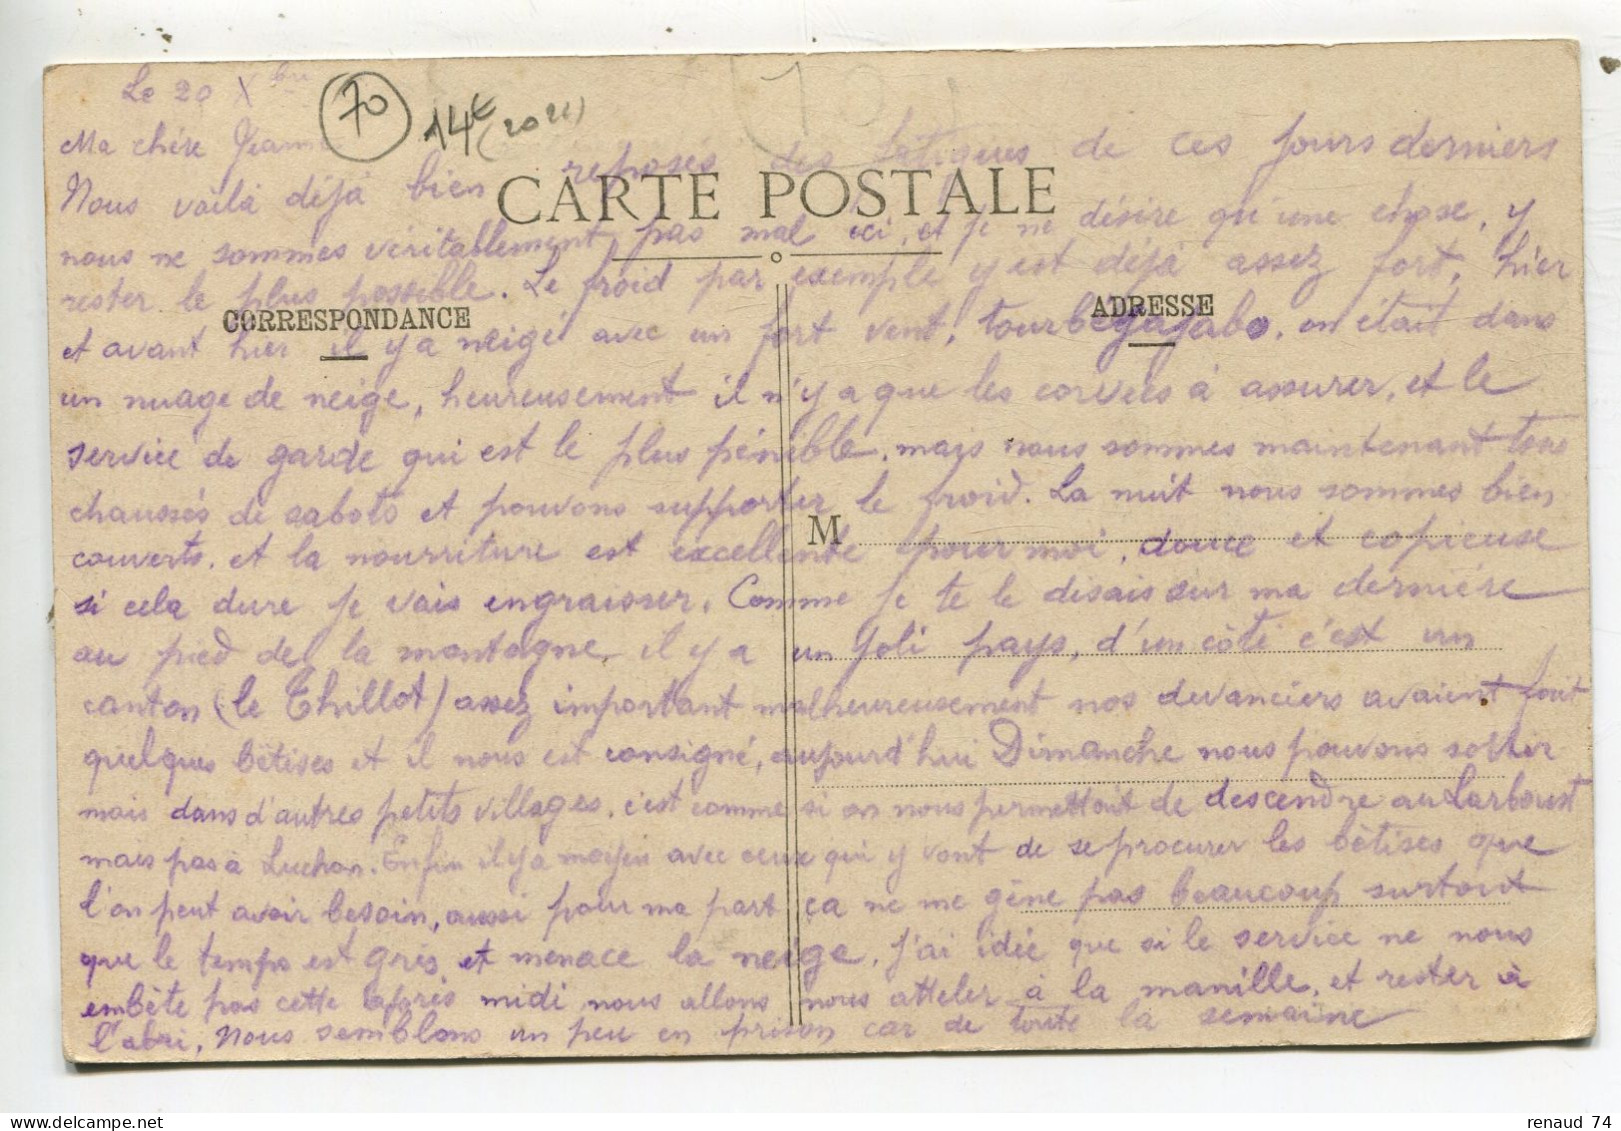 Le 20 Xbre
70
14€ (2021)
Ma chère Jeanne
Nous voilà déjà bien reposés des fatigues de ces jours derniers
CARTE POSTALE
nous ne sommes véritablement pas mal ici, et je ne désire qu'une chose, y
rester le plus possible. Le froid par exemple y est déjà assez fort, hier
CORRESPONDANCE
ADRESSE
et avant hier il y a neigé avec un fort vent, on était dans
un nuage de neige, heureusement il n'y a que les corvées à assurer, et le
service de garde qui est le plus pénible, mais nous sommes maintenant tous
chaussés de sabots et pouvons supporter le froid. La nuit nous sommes bien
M
couverts, et la nourriture est excellente pour moi, douce et copieuse
si cela dure je vais engraisser. Comme je te le disais sur ma dernière
au pied de la montagne, il y a un joli pays, d'un côté c'est un
canton (le Thillot) assez important malheureusement nos devanciers avaient fait
quelques bêtises et il nous est consigné, aujourd'hui Dimanche nous pouvons sortir
mais dans d'autres petits villages, c'est comme si on nous permettait de descendre au Larboust
mais pas à Luchon. Enfin il y a moyen avec ceux qui y vont de se procurer les bêtises que
l'on peut avoir besoin, aussi pour ma part ça ne me gêne pas beaucoup surtout
que le temps est gris et menace la neige. J'ai idée que si le service ne nous
embête pas cette après midi nous allons nous atteler à la manille, et rester à
l'abri. Nous semblons un peu en prison car de toute la semaine
renaud 74